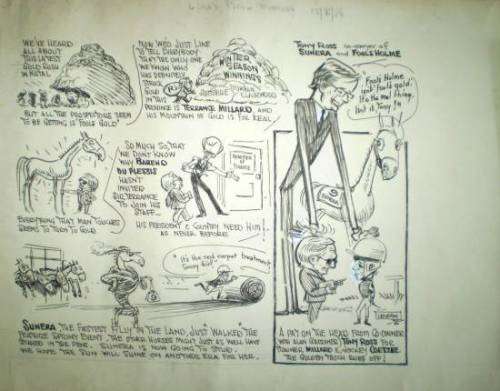 WE'VE HEARD
ALL ABOUT
THIS LATEST
GOLD RUSH
IN NATAL
BUT ALL THE PROSPECTORS SEEM
TO BE GETTING IS FOOLS GOLD
NOW WE'D JUST LIKE
TO TELL EVERYBODY
THAT THE ONLY ONE
WE KNOW WHO
HAS DEFINITELY
GOLD
IN THIS
IS TERRANCE MILLARD AND
HIS MOUNTAIN OF GOLD IS FOR REAL
WINTER
SEASON
WINNINGS
EVERYTHING THAT MAN TOUCHES
SEEMS TO TURN TO GOLD
SO MUCH SO, THAT
WE DON'T KNOW
WHY BAREND
DU PLESSIS
HASN'T
INVITED
TERRANCE
TO JOIN HIS
STAFF...
MINISTER OF
FINANCE
HIS PRESIDENT & COUNTRY NEED HIM
AS NEVER BEFORE
"It's the red carpet treatment
SUNERA, THE FASTEST FILLY IN THE LAND, JUST "WALKED" THE
SPRINT EVENT. THE OTHER HORSES MIGHT JUST AS WELL HAVE
STAYED IN THE PENS. SUNERA IS NOW GOING TO STUD.
WE HOPE THE SUN WILL SHINE ON ANOTHER ERA FOR HER.
TONY ROSS co-owner of
SUNERA and FOOLS HOLME
Fools Holme
isn't fool's gold,
it's the real thing,
isn't it, Tony?
A PAT ON THE HEAD FROM CO-OWNER
TONY ROSS FOR
TRAINER MILLARD & JOCKEY COETZEE.
THE GOLDEN TOUCH RUBS OFF!